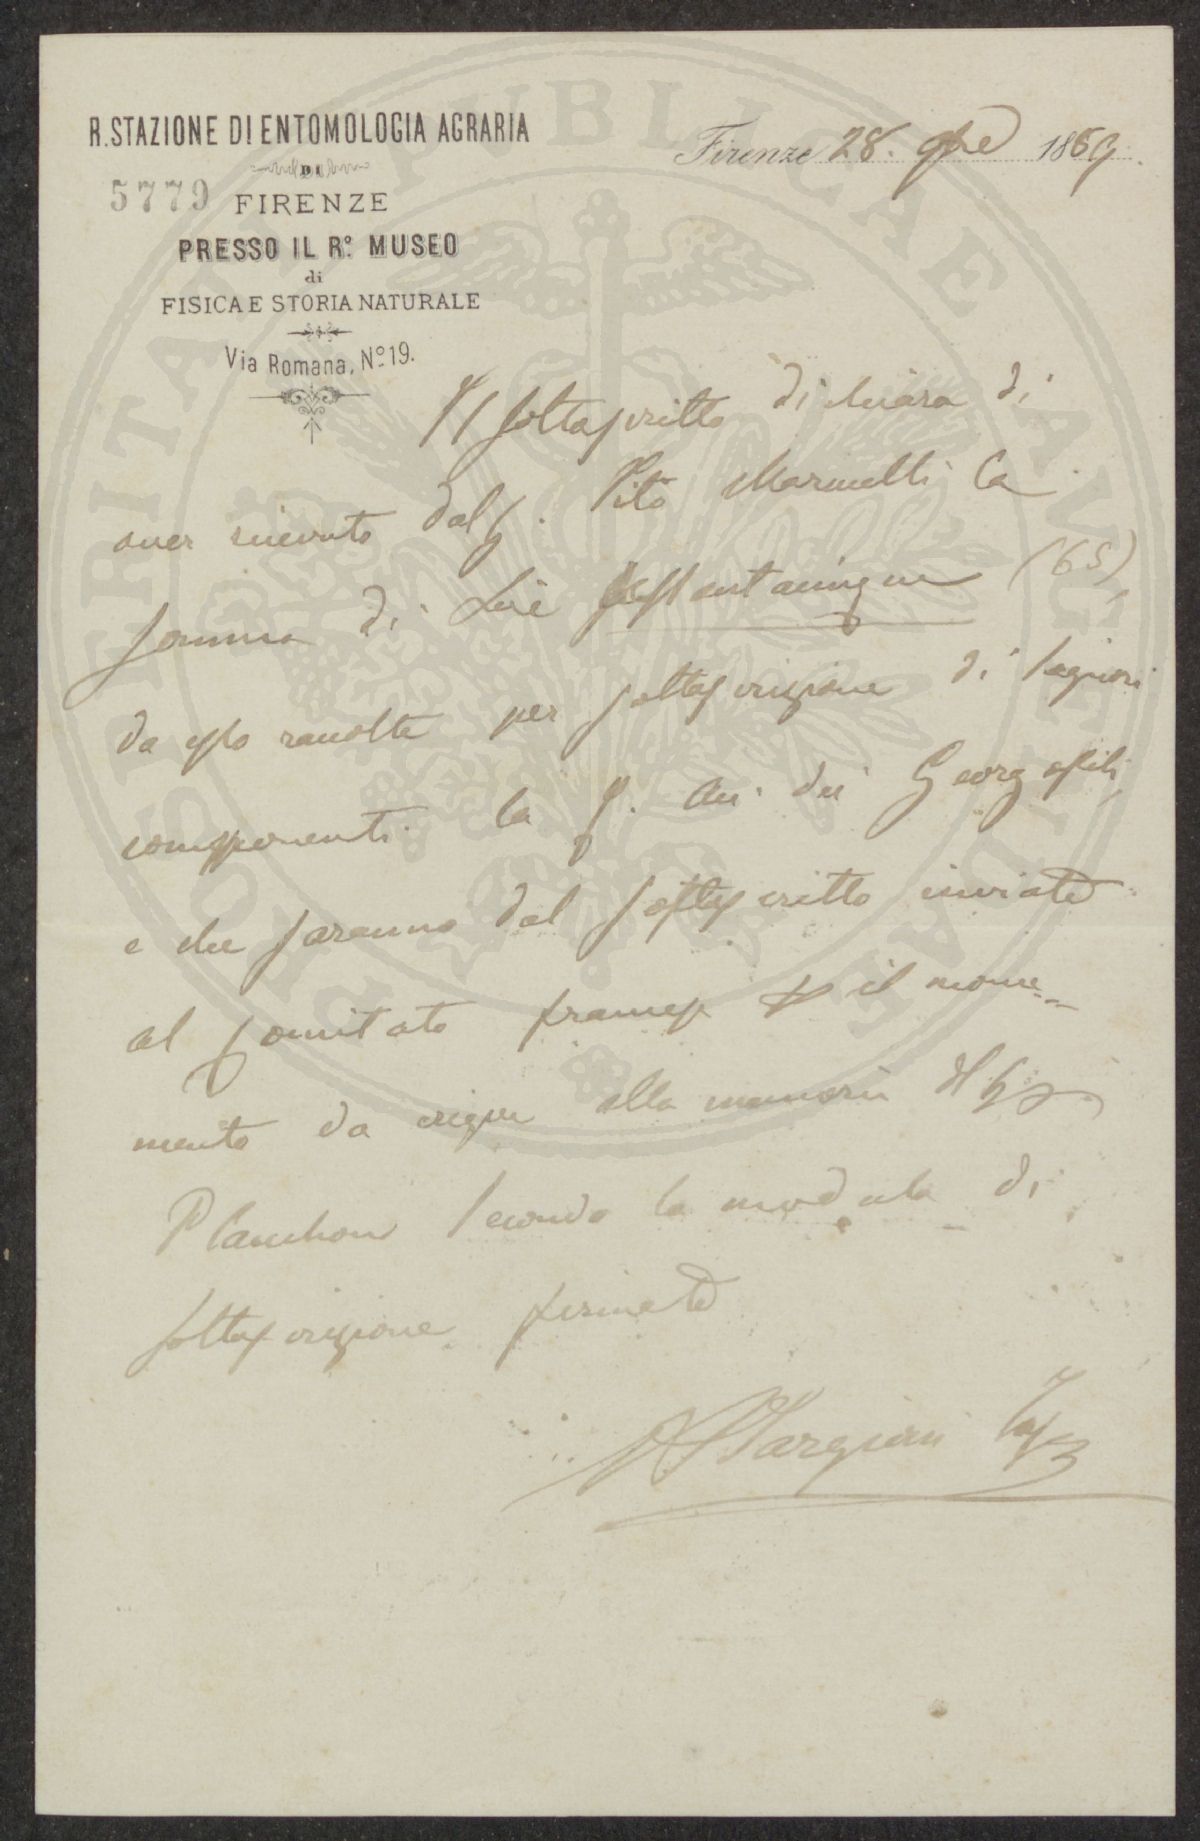 R. STAZIONE DI ENTOMOLOGIA AGRARIA
DI
5779 FIRENZE
PRESSO IL R.º MUSEO
di
FISICA E STORIA NATURALE
Via Romana, Nº 19.
Firenze 28. 9bre 1889
Il sottoscritto dichiara di
aver ricevuto dal S. Vito Marinelli la
somma di Lire sessantacinque (65),
da esso raccolte per sottoscrizione di signori
componenti la R. Acc. dei Georgofili,
e che saranno dal sottoscritto inviate
al Comitato francese il monu-
mento da erigere alla memoria del
Planchon secondo la modula di
sottoscrizione firmate
Targioni Tozz
PROSPERITATI PVBLICAE AVGENDAE